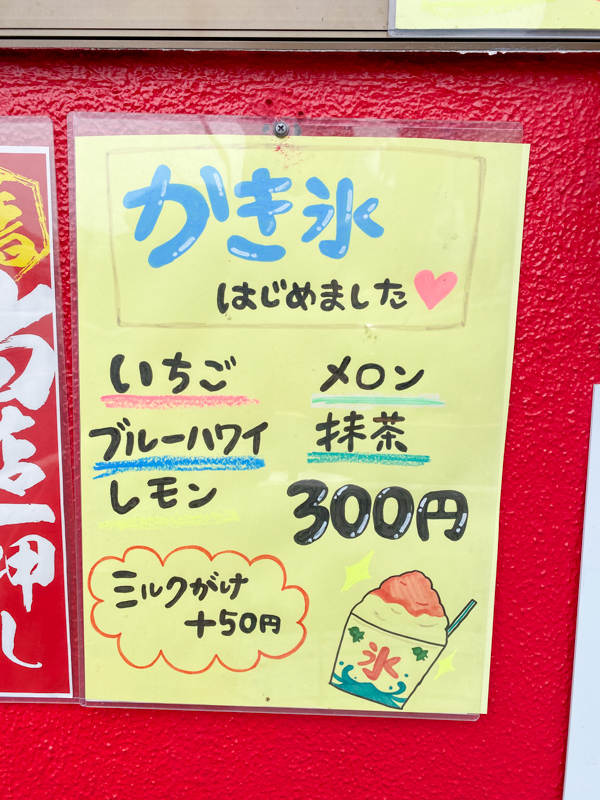 かき氷
はじめました
いちご
メロン
ブルーハワイ
抹茶
レモン
300円
ミルクがけ
+50円
氷
店一押し